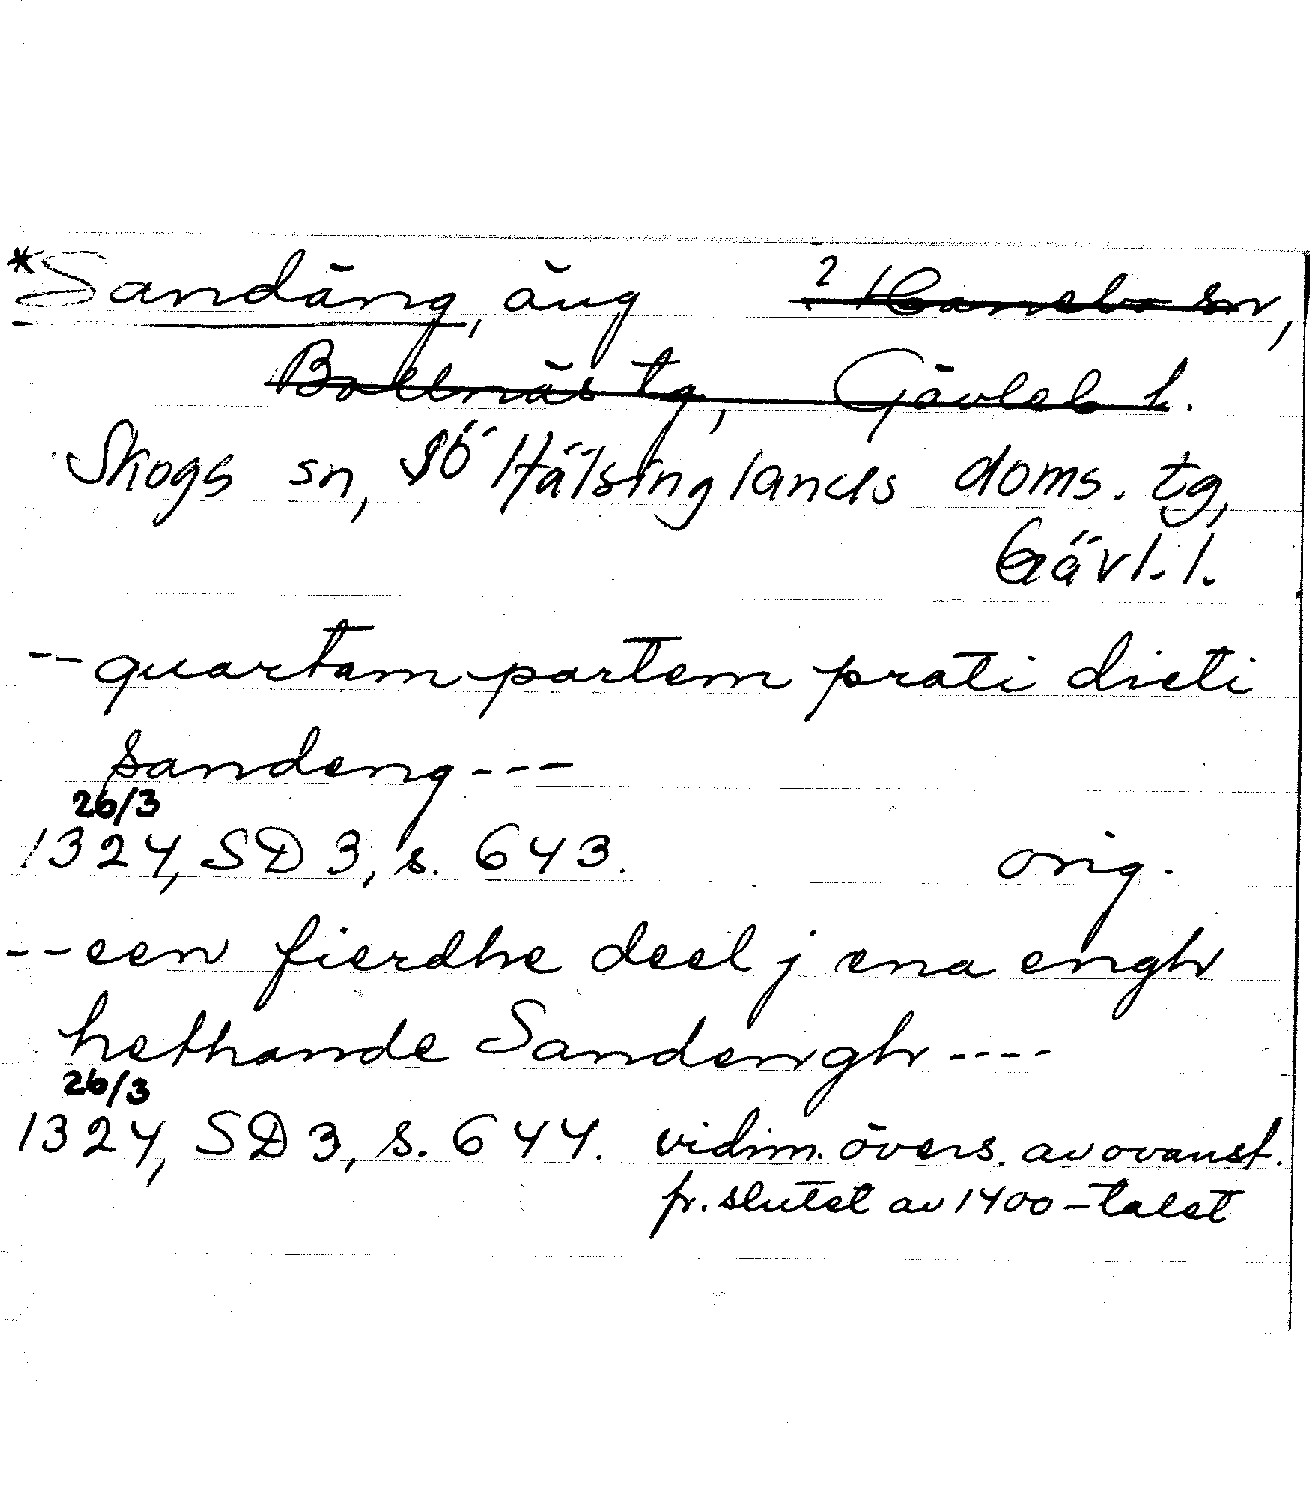 *Sandäng, äng ? Hanebo sn,
Bollnäs tg, Gävleb l.
Skogs sn, Sö Hälsinglands doms. tg,
Gävl. l.
-- quartam partem prati dicti
sandeng ---
26/3
1324, SD 3, s. 643. orig.
-- een fierdhe deel j ena engh
hethande Sandengh ----
26/3
1324, SD 3, s. 644. vidim. övers. av ovanst.
fr. slutet av 1400-talet